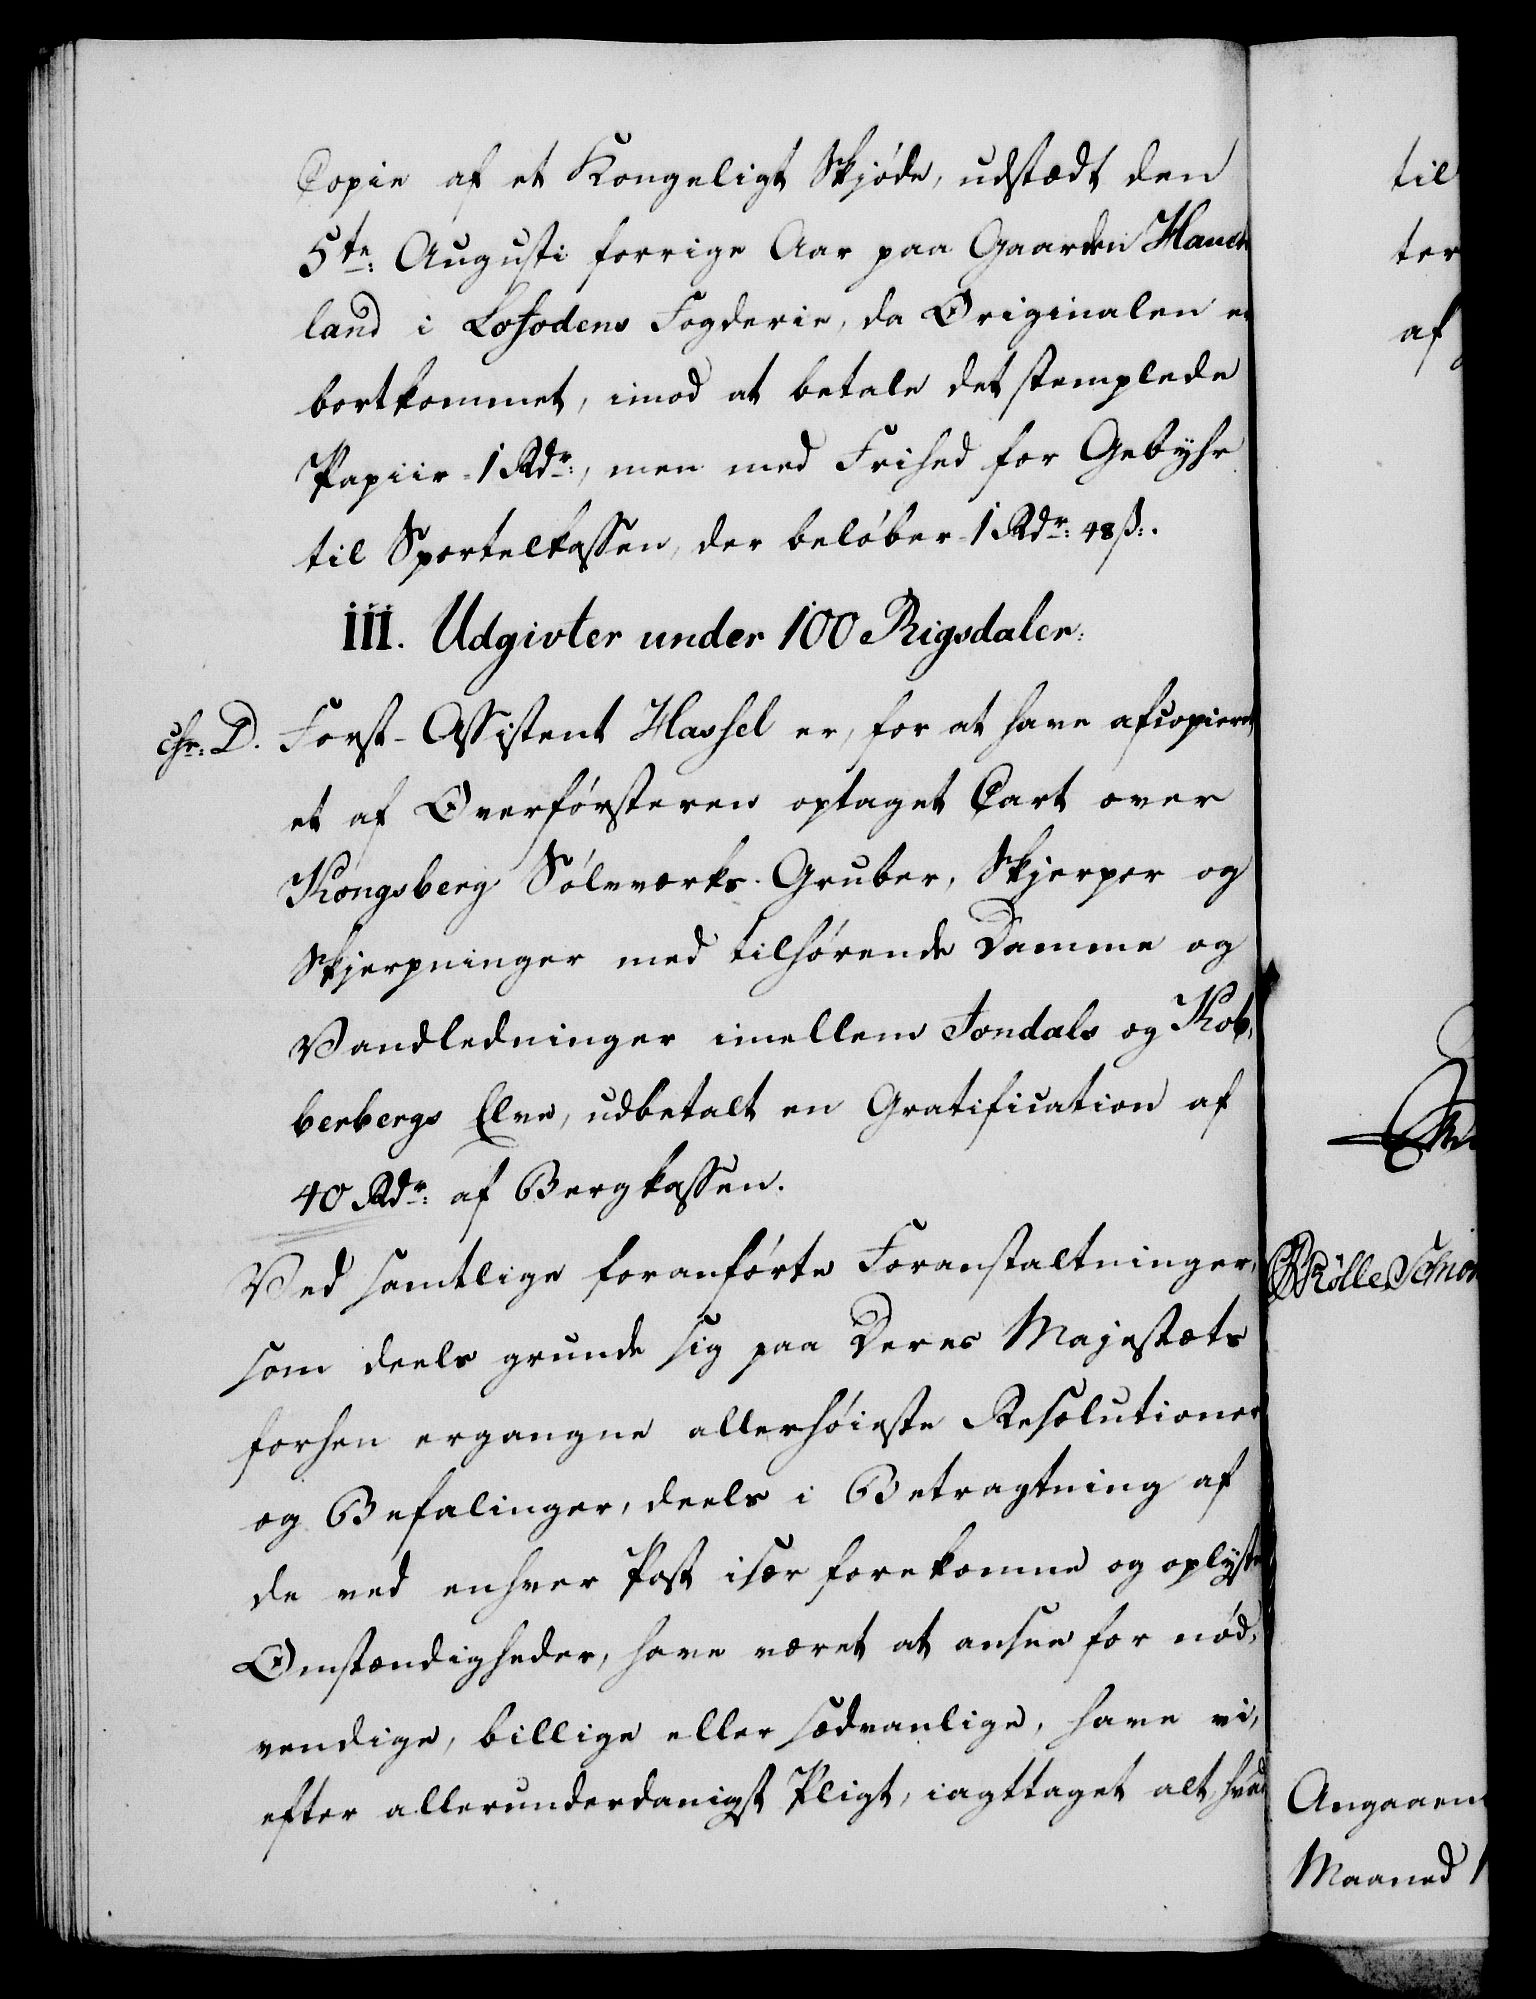 Copie af et Kongeligt Skjöde, udstædt den
5te: Augusti forrige Aar paa Gaarden Hauch
land i Lofodens Fogderie, da Originalen er
bortkommet, imod at betale det stemplede
Papiir 1 Rdr:, men med Frihed for Gebyhr
til Sportelkassen, der belöber 1 Rdr: 48 ß:.
III. Udgivter under 100 Rigsdaler:
Chr: D. Forst-Assistent Hassel er, for at have afcopieret
et af Overförsteren optaget Cart over
Kongsberg Sölvværks Gruber, Skjerper og
Skjerpninger med tilhörende Damme og
Vandledninger imellem Jondals og Kob,
berbergs Elve, udbetalt en Gratification af
40 Rdr: af Bergkassen.
Ved samtlige foranförte Foranstaltninger,
som deels grunde sig paa Deres Majestæts
forhen ergangne allerhöieste Resolutioner
og Befalinger, deels i Betragtning af
de ved enhver Post især forekomne og oplyste
Omstændigheder, have været at ansee for nöd,
vendige, billige eller sædvanlige, have vi,
efter allerunderdanigst Pligt, iagttaget alt, hvad
til
ter
af
Angaaen
Maaned 1